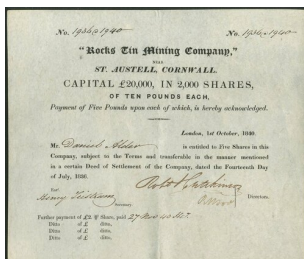 No. 1936 @ 1940 No. 1936 @ 1940
"Rocks Tin Mining Company,"
NEAR
ST. AUSTELL, CORNWALL.
CAPITAL £20,000, IN 2,000 SHARES,
OF TEN POUNDS EACH,
Payment of Five Pounds upon each of which, is hereby acknowledged.
London, 1st October, 1840.
Mr. Daniel Alder is entitled to Five Shares in this
Company, subject to the Terms and transferable in the manner mentioned
in a certain Deed of Settlement of the Company, dated the Fourteenth Day
of July, 1836.
For
Henry
Directors.
Further payment of £2 ⅌ Share, paid 27 Nov 40
Ditto of £ ditto.
Ditto of £ ditto.
Ditto of £ ditto.